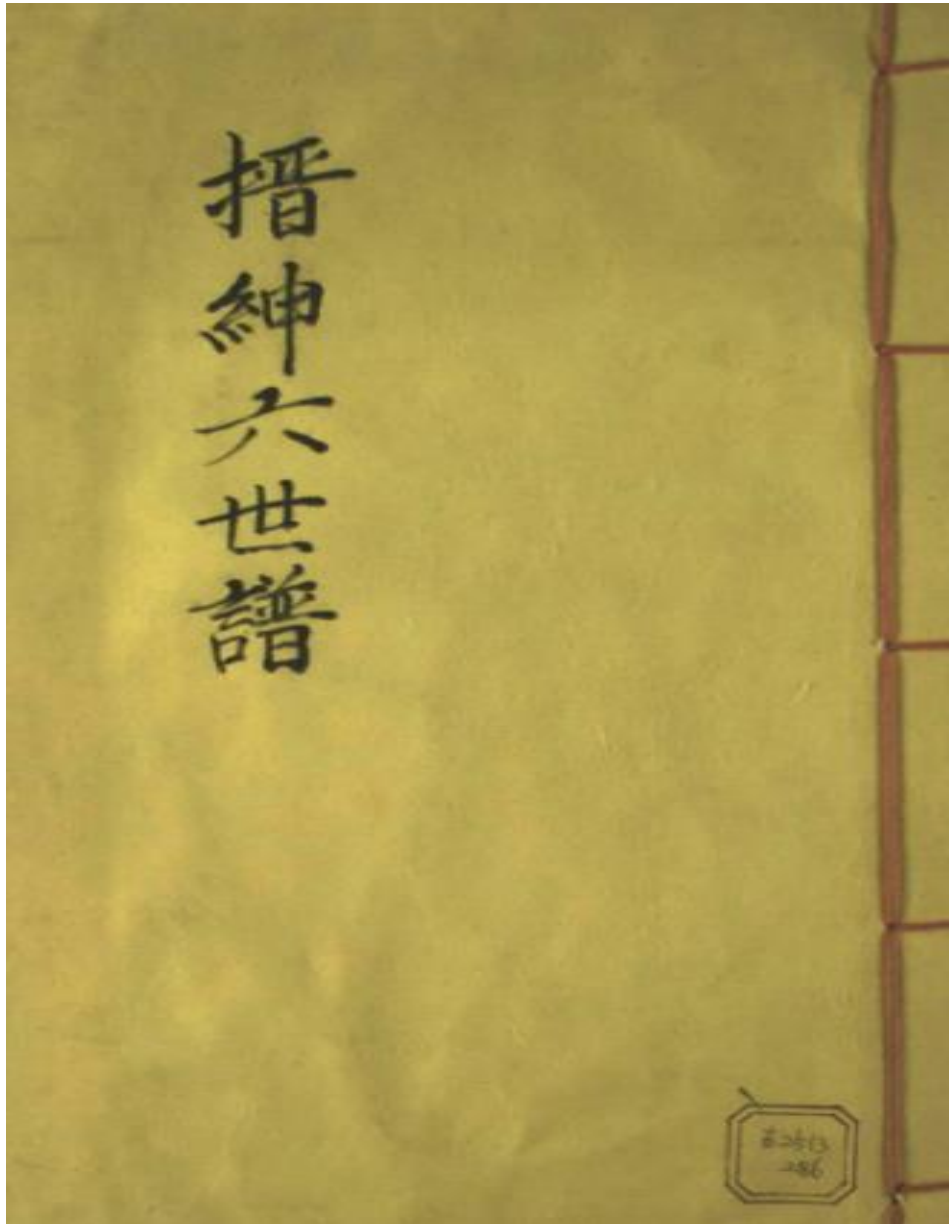 搢紳六世譜
古2513
286